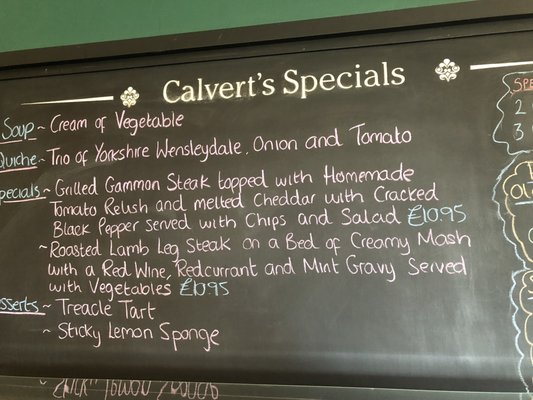 Calvert's Specials
Soup ~ Cream of Vegetable
Quiche ~ Trio of Yorkshire Wensleydale, Onion and Tomato
pecials ~ Grilled Gammon Steak topped with Homemade
Tomato Relish and melted Cheddar with Cracked
Black Pepper served with Chips and Salad £10.95
~ Roasted Lamb Leg Steak on a Bed of Creamy Mash
with a Red Wine, Redcurrant and Mint Gravy Served
with Vegetables £10.95
sserts ~ Treacle Tart
~ Sticky Lemon Sponge
SPE
2
3